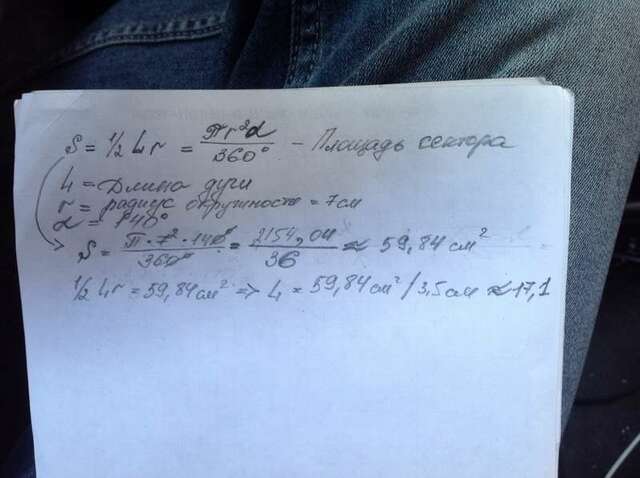 S = 1/2 Lr = πr²α/360° - Площадь сектора
L = Длина дуги
r = радиус окружности = 7см
α = 140°
S = π·7²·140°/360° = 2154,04/36 ≈ 59,84 см²
1/2 Lr = 59,84 см² => L = 59,84 см²/3,5см ≈ 17,1